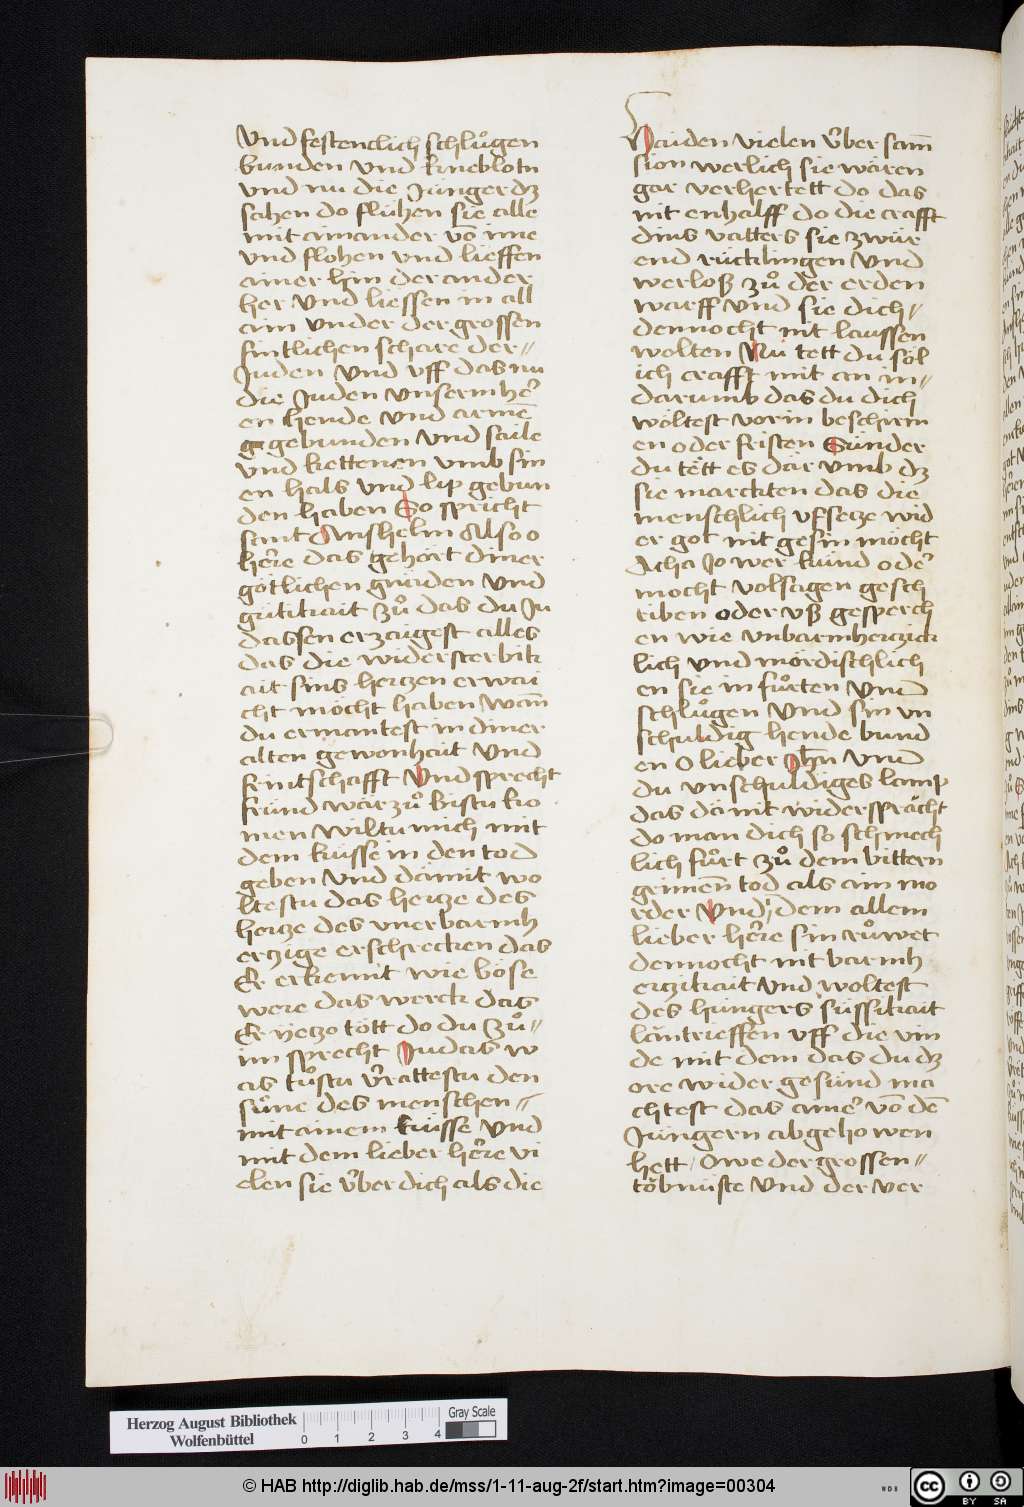 Vnd festenclich schlůgen
bunden vnd kneblotn
vnd nu die Junger dz
sahen do fluhen sie alle
mit ainander vō ime
vnd flohen vnd lieffen
ainer hin der ander
her Vnd liessen in all
ain vnder der grossen
sintlichen schare der
Juden Vnd vff das nu
die Juden vnserm her̄
en hende Vnd armē
gebunden Vnd saile
vnd kettenen vmb sin
en hals vnd lip gebun
den haben So spricht
sant Anshelm Also o
here das gehört diner
götlichen gnäden vnd
gütikait zů das du Ju
dassen erzaigest alles
das die widersterbik
ait sins hertzen erwai
cht möcht haben Wañ
du ermantest in diner
alten gewonhait Vnd
frintschafft Vnd sprecht
fründ war zů bistu ko
men wiltu mich mit
dem küsse in den tod
geben Vnd dämit wo
ltestu das hertze des
hertze des vnerbarmh
ertzige erschrecken das
Er erkennit wie böse
were das werck das
Er yetzo tött do du zů
im sprecht Judas w
as tůstu v̄rattestu den
sůne des menschen
mit ainem küsse Vnd
mit dem lieber here vi
elen sie v̄ber dich als die
Haiden vielen v̄ber sam̄
sion werlich sie wären
gar verhertett do das
nit enhalff do die crafft
dins vatters sie zwür
end rücklingen Vnd
werloß zů der erden
warff Vnd sie dich
dennocht nit laussen
wolten Nu tett du söl
ich crafft mit an in
darumb das du dich
wöltest vor in beschirm
en oder fristen Sünder
du tëtt es dar vmb dz
sie marckten das die
menschlich vfsetze wid
er got nit gesin möcht
Acha Jo wer kund oder̄
mocht volsagen gesch
riben oder vß gesperch
en wie vnbarmhertzick
lich vnd mördischlich
en sie in fůrten Vnd
schlůgen Vnd sin vn
schuldig hende bund
en O lieber Jhn Vnd
du vnschuldiges lamp
das dä nit widersprächt
do man dich so schmech
lich fůrt zů dem bittern
grimen̄ tod als ain mo
rder Vnd dem allem
lieber here sin růwet
dennocht nit barmh
ertzikait Vnd woltest
des hungers süssikait
läntrieffen vff die vin
de mit dem das du dz
ore wider gesund ma
chtest das ainer̄ vō dē
Jungern abgehowen
hett / Owe der grossen
töbnüste Vnd der ver
Herzog August Bibliothek
Wolfenbüttel
0 1 2 3 4
Gray Scale
© HAB http://diglib.hab.de/mss/1-11-aug-2f/start.htm?image=00304
cc BY SA